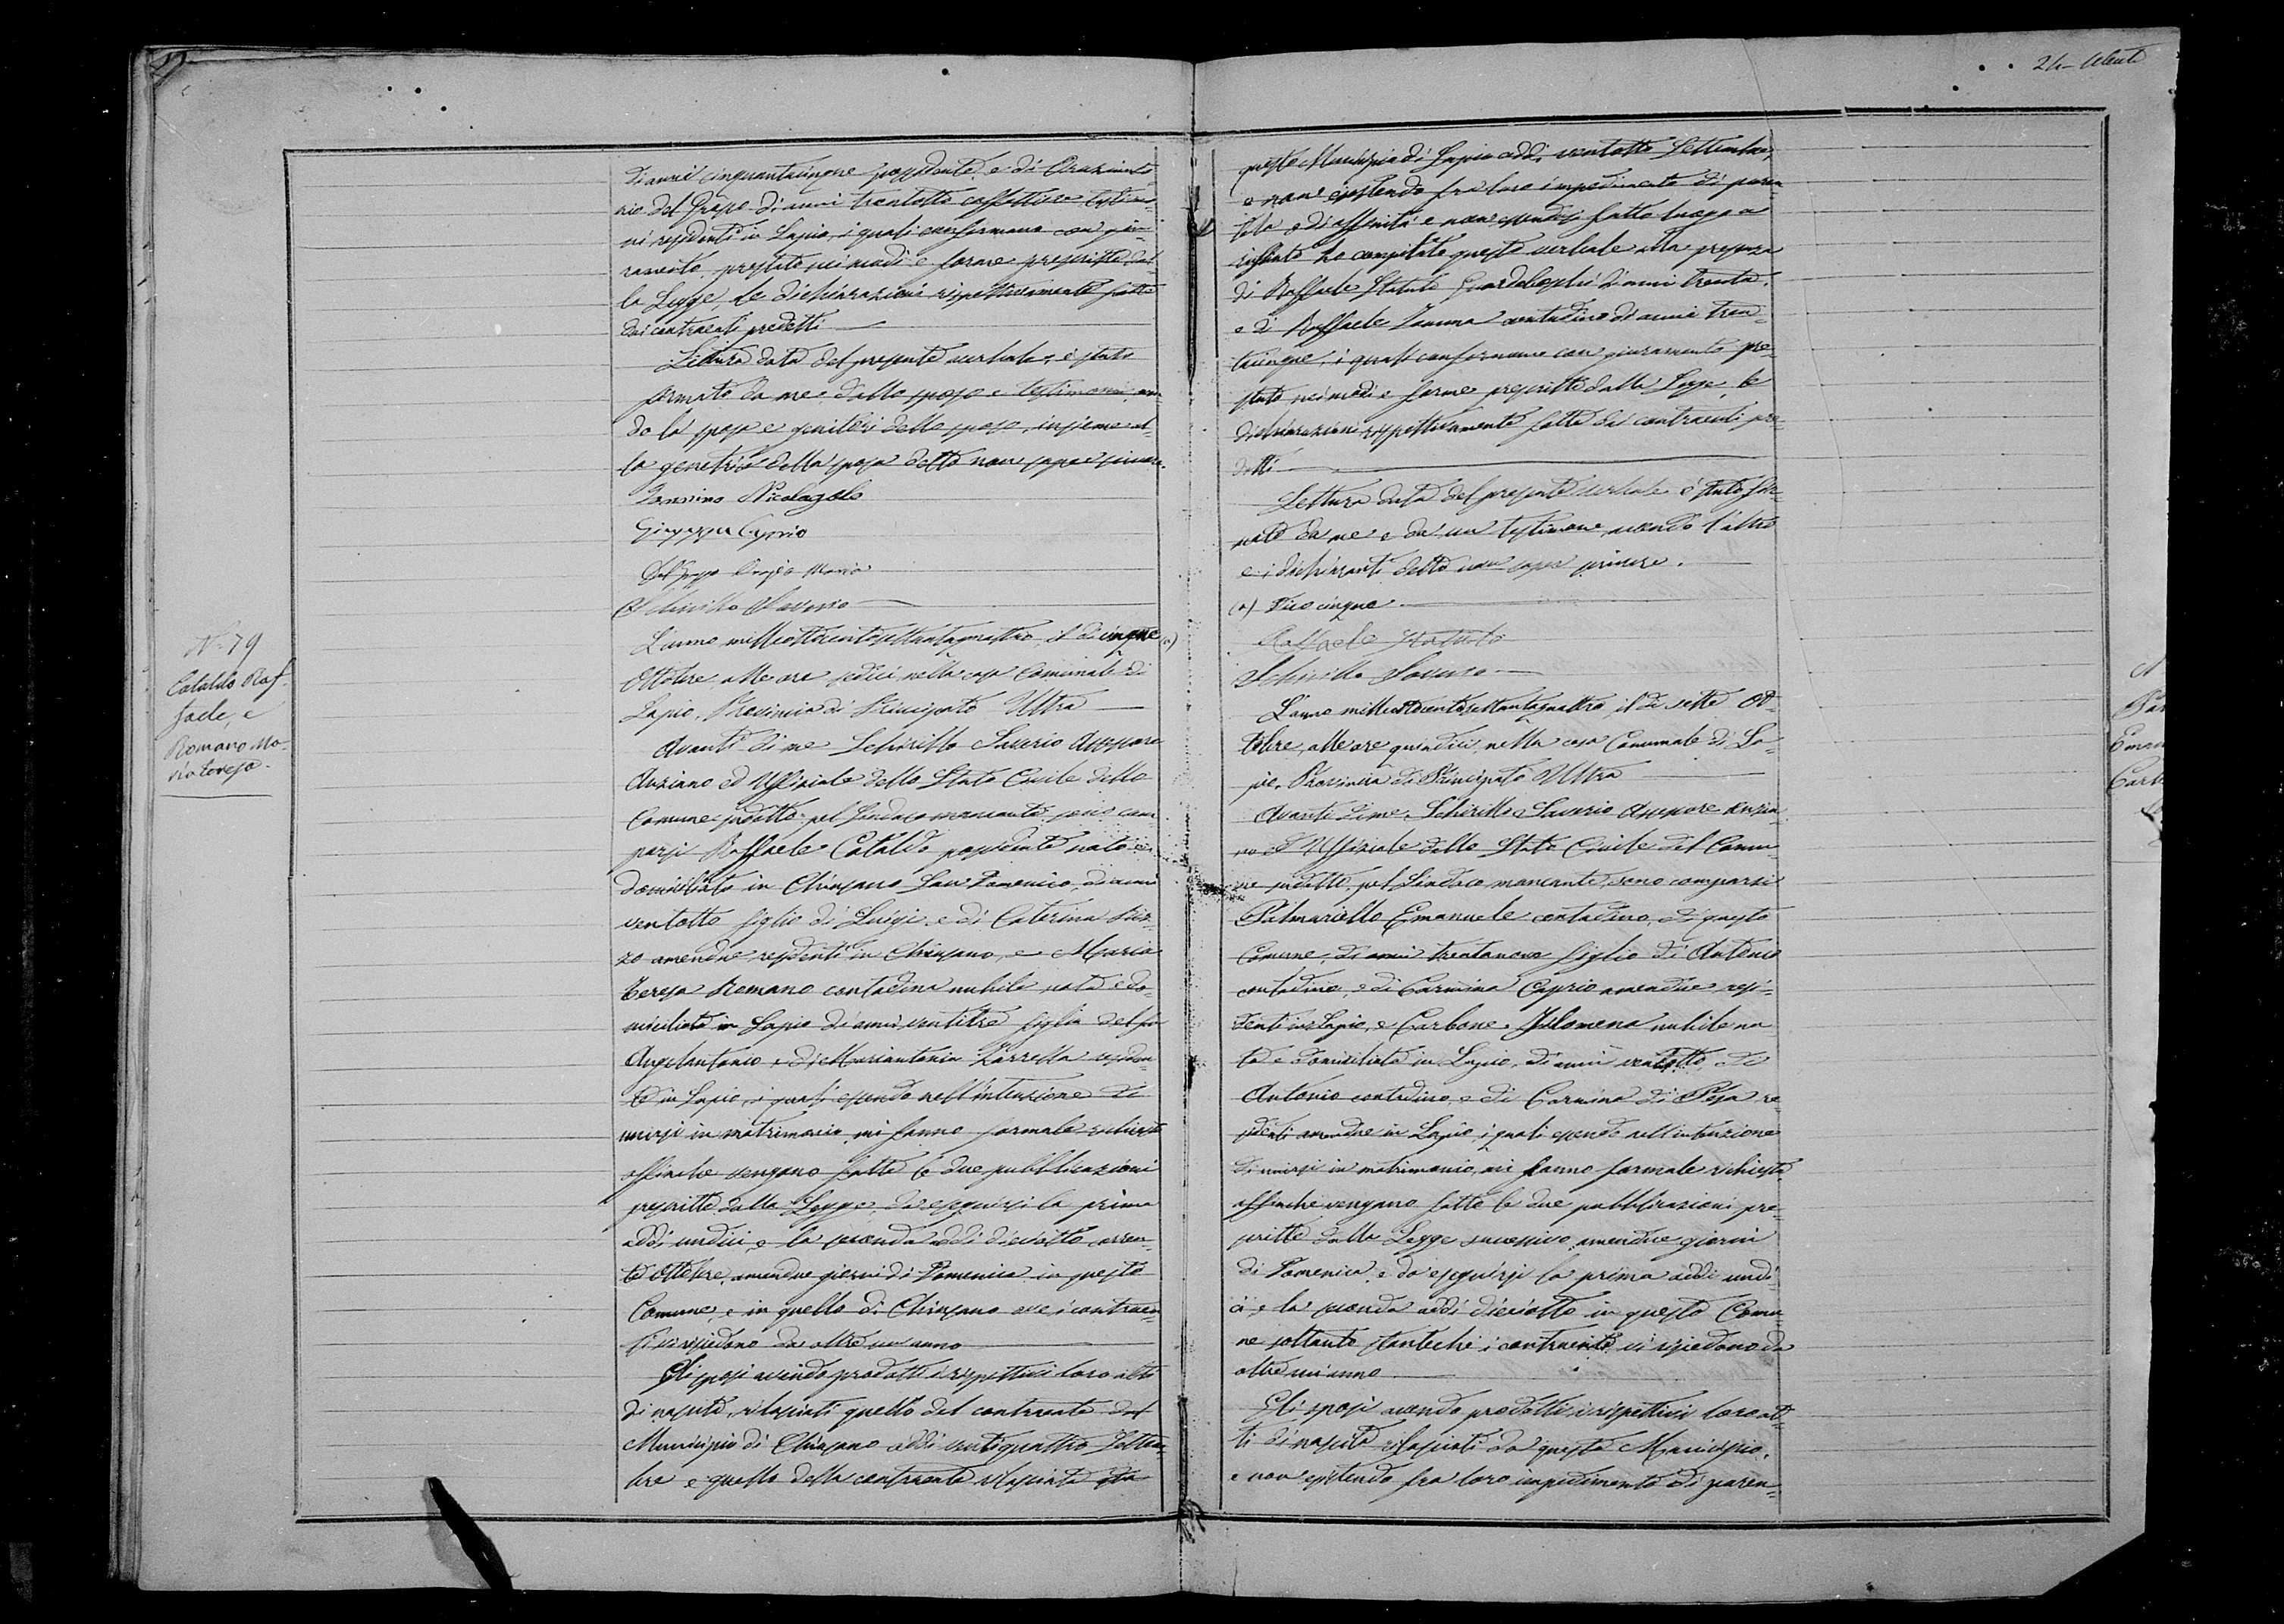 24-
di anni cinquantacinque possidente e di Orazio Ma-
rio del Grosso di anni trentotto caffettiere testimo-
ni residenti in Lapio, i quali confermano con giu-
ramento prestato nei modi e forme prescritte dal-
la Legge, le dichiarazioni rispettivamente fatte
dai contraenti predetti
Lettura data del presente verbale, è stato
firmato da me dallo sposo e testimoni, aven-
do la sposa e genitori dello sposo, insieme al-
la genitrice della sposa detto non saper firmare.
Nicolagelo
Giuseppe Caprio
Del Grosso Orazio Maria
Schirillo Saverio
N. 79
Cataldo Raf-
faele, e
Romano Ma-
ria Teresa.
L'anno milleottocentosettantaquattro, il dì cinque (a)
Ottobre, alle ore sedici, nella casa Comunale di
Lapio, Provincia di Principato Ultra
Avanti di me Schirillo Saverio Assessore
Anziano ed Uffiziale dello Stato Civile dello
Comune sudetto pel Sindaco mancante sono com-
parsi Raffaele Cataldo possidente nato e
domiciliato in Chiusano San Domenico, di anni
ventotto figlio di Luigi e di Caterina
zo amendue residenti in Chiusano, e Maria
Teresa Romano contadina nubile nata e do-
miciliata in Lapio di anni ventitré figlia del fu
Angelantonio e di Mariantonia Zarrella residen-
te in Lapio, i quali essendo nell'intenzione di
unirsi in matrimonio mi fanno formale richiesta
affinché vengano fatte le due pubblicazioni
prescritte dalla Legge, da eseguirsi la prima
addì undici, e la seconda addì dieciotto corren-
te Ottobre, amendue giorni di Domenica in questo
Comune, e in quello di Chiusano ove i contraen-
ti vi risiedono da oltre un anno
Gli sposi avendo prodotti i rispettivi loro atti
di nascita, rilasciati quello del contraente dal
Municipio di Chiusano addì ventiquattro Settem-
bre e quello della contraente rilasciato da
questo Municipio di Lapio addì ventotto Settembre,
e non esistendo fra loro impedimento di paren-
tela o di affinità e non essendosi fatto luogo a
rifiuto ho compilato questo verbale alla presenza
di Raffaele Statuto Guardaboschi di anni trenta,
e di Raffaele contadino di anni tren-
tacinque, i quali confermano con giuramento pre-
stato nei modi e forme prescritte dalla Legge, le
dichiarazioni rispettivamente fatte dai contraenti pre-
detti
Lettura data del presente verbale è stato fir-
mato da me e da un testimone, avendo l'altro
e i dichiaranti detto non saper firmare.
(a) Dico cinque
Raffaele Statuto
Schirillo Saverio
L'anno milleottocentosettantaquattro, il dì sette Ot-
tobre, alle ore quindici, nella casa Comunale di La-
pio, Provincia di Principato Ultra
Avanti di me Schirillo Saverio Assessore Anzia-
no ed Uffiziale dello Stato Civile del Comu-
ne sudetto, pel Sindaco mancante, sono comparsi
Palmariello Emanuele contadino, di questo
Comune, di anni trentanove figlio di Antonio
contadino, e di Carmina Caprio amendue resi-
denti in Lapio, e Carbone Filomena nubile na-
ta e domiciliata in Lapio, di anni ventotto, di
Antonio contadino, e di Carmina di Pesa re-
sidenti amendue in Lapio, i quali essendo nell'intenzione
di unirsi in matrimonio, mi fanno formale richiesta
affinché vengano fatte le due pubblicazioni pre-
scritte dalla Legge successive amendue giorni
di Domenica, e da eseguirsi la prima addì undi-
ci, e la seconda addì dieciotto in questo Comu-
ne soltanto stanteché i contraenti vi risiedono da
oltre un anno
Gli sposi avendo prodotti i rispettivi loro at-
ti di nascita rilasciati da questo Municipio,
e non esistendo fra loro impedimento di paren-